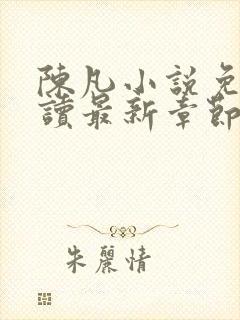 陳凡小説免
讀最新章節
朱麗情